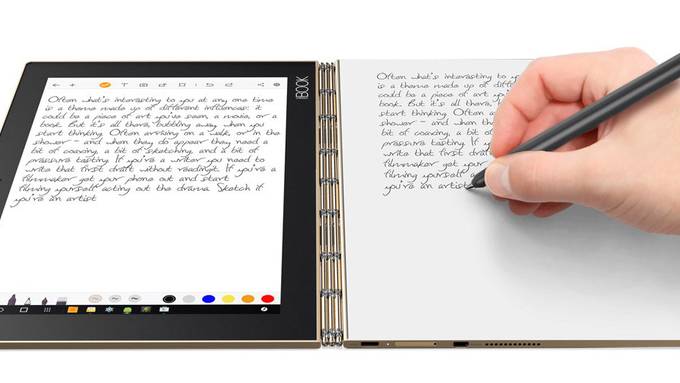 BOOK
Often what's interesting to you at any one time
is a theme made up of different influences: it
could be a piece of art you've seen, a movie, or a
book. But it's all there, bubbling away when you
start thinking. Often arriving on a walk, or in the
shower - and when they do appear they need a
bit of coaxing, a bit of sketching, and a bit of
pressure tasting. If you're a writer you need to
write that first draft without reading it. If you're a
filmmaker get your phone out and start
filming yourself acting out the drama. Sketch if
you're an artist
Often what's interesting to
is a theme made up of
could be a piece of art
book. But it's all there,
start thinking. Often
shower - and when
bit of coaxing, a bit
pressure tasting. If
write that first
filmmaker get your
filming yourself
you're an artist